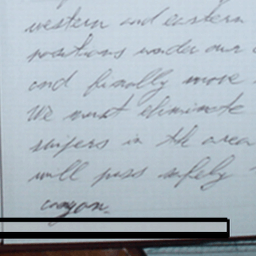 western and eastern
positions under our
and finally move
We must eliminate
snipers in the area
will pass safely
canyon.